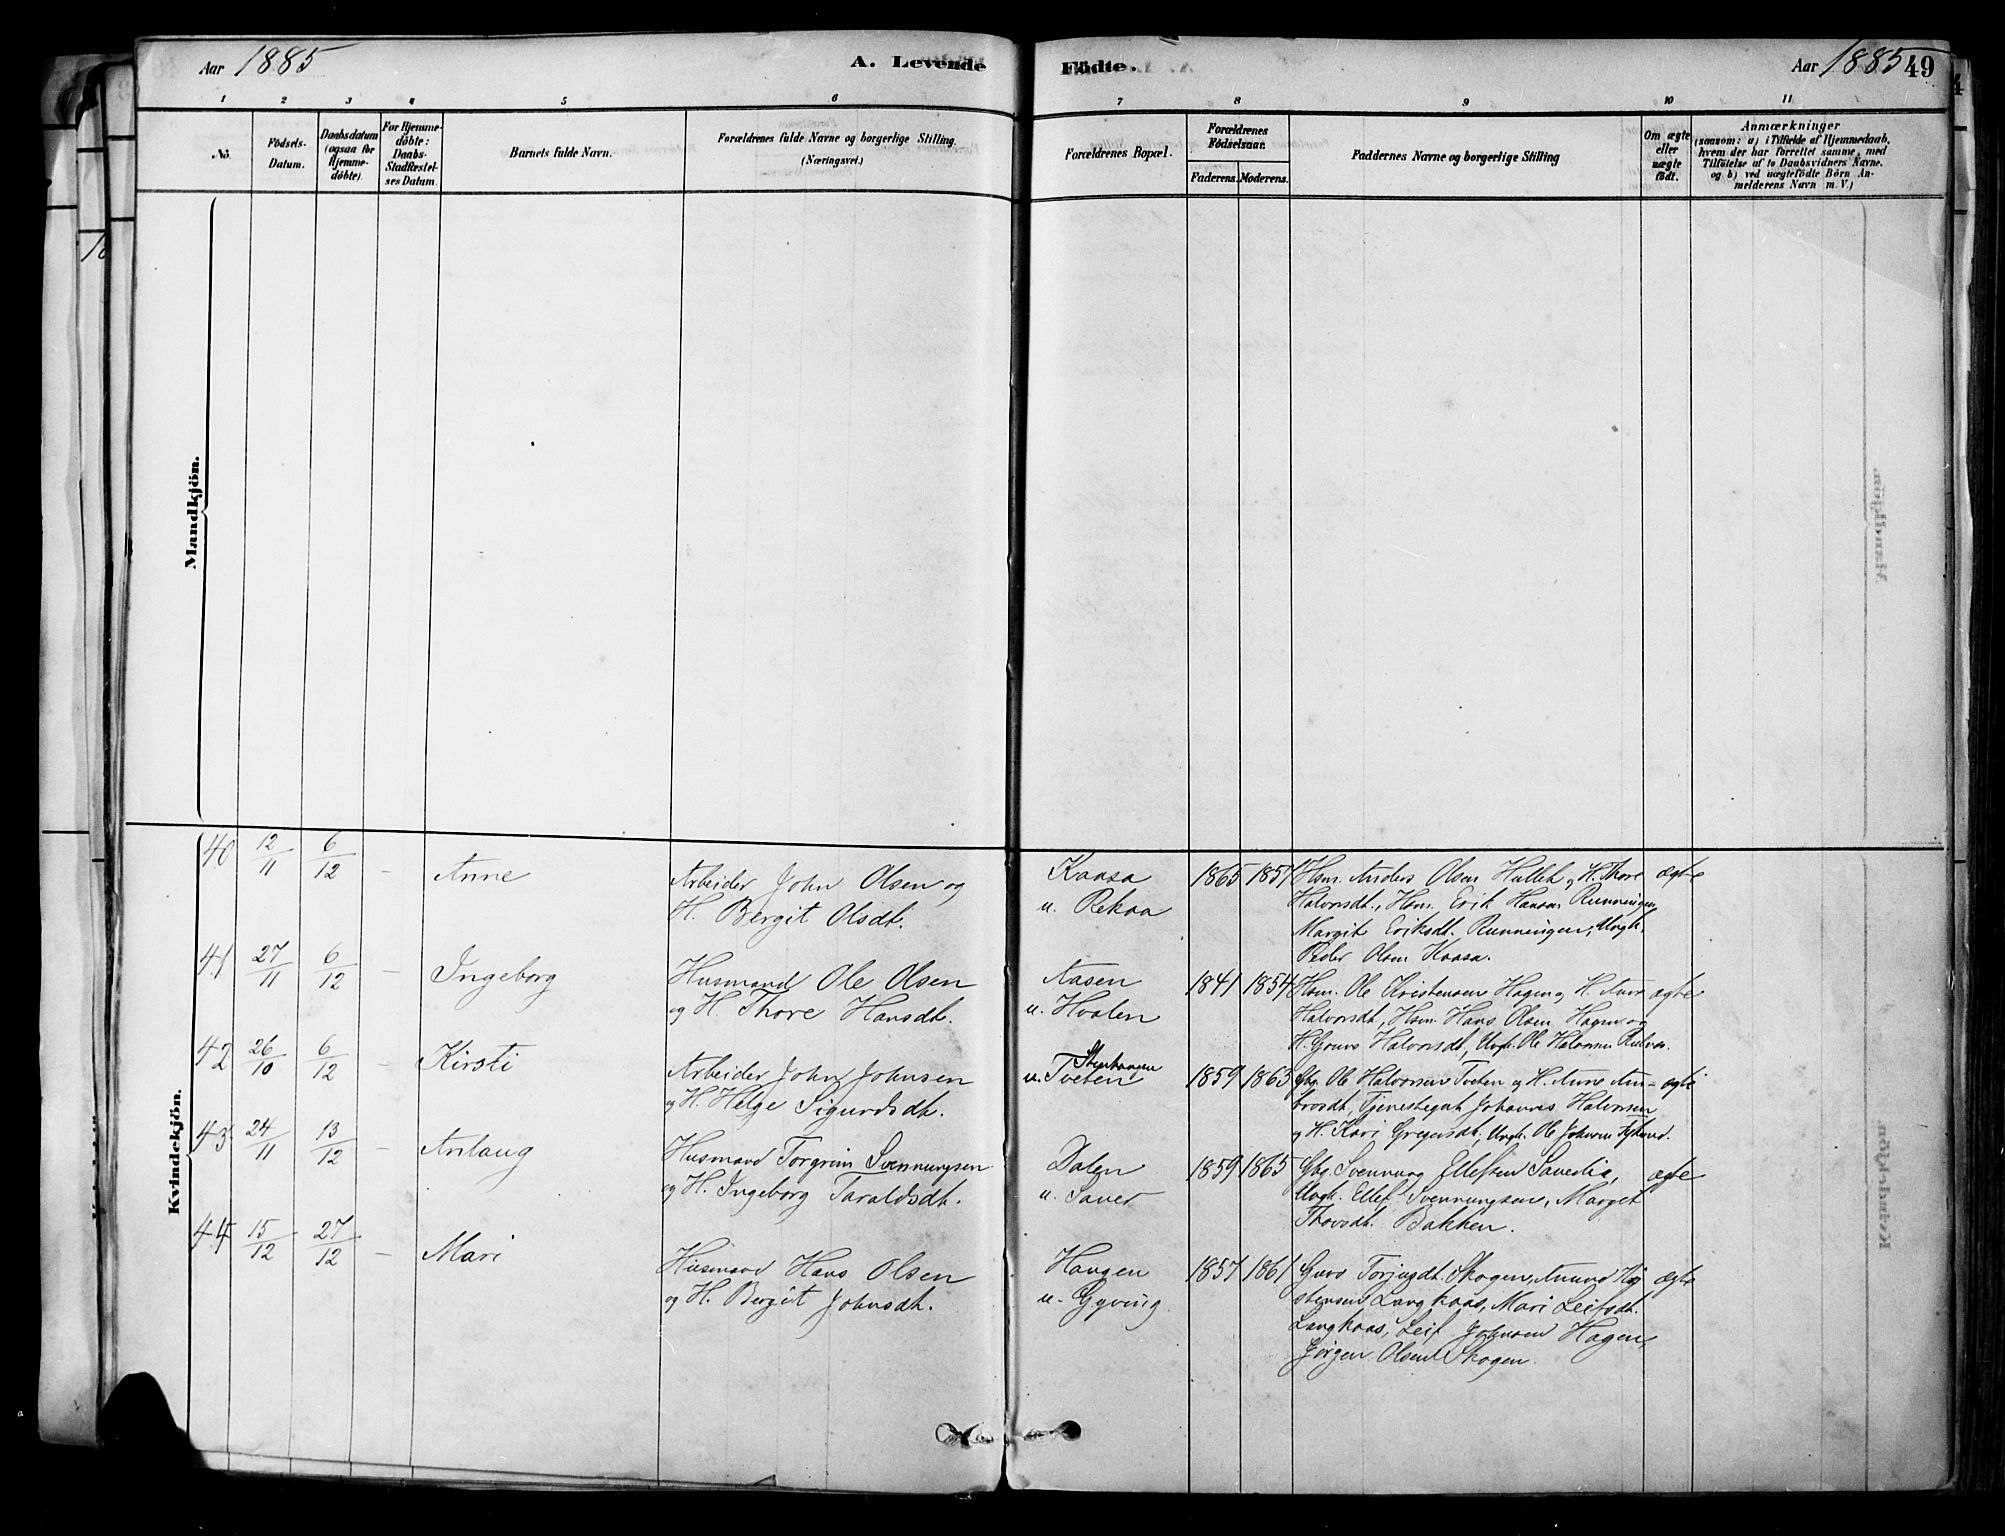 Aar 1885
A. Levende
Födte.
Aar 1885
49
1 2 3 4 5 6 7 8 9 10 11
No.
Födsels-
Datum.
Daabsdatum
(ogsaa for
Hjemme-
döbte).
For Hjemme-
döbte:
Daabs-
Stadfæstel-
ses Datum.
Barnets fulde Navn.
Forældrenes fulde Navne og borgerlige Stilling.
(Næringsvei.)
Forældrenes Bopæl.
Forældrenes
Födselsaar.
Faderens. Moderens.
Faddernes Navne og borgerlige Stilling
Om ægte
eller
uægte
födt.
Anmærkninger
(saasom: a) i Tilfælde af Hjemmedaab,
hvem der har forrettet samme, med
Tilföielse af to Daabsvidners Navne.
og b) ved uægtefödte Börn An-
melderens Navn m. V.)
Mandkjön.
Kvindekjön.
40 12/11 6/12 - Anne
Arbeider John Olsen og
H. Bergit Olsdt.
Kaasa
u. Rekaa
1865 1857
Hsm. Anders Olsen og H. Thore
Halvorsdt., Hsm. Erik Hansen Runningen,
Margit Eriksdt. Runningen, Ungk.
Peder Olsen Kaasa.
ægte
41 27/11 6/12 - Ingeborg
Husmand Ole Olsen
og H. Thore Hansdt.
Aasen
u. Hvalen
1841 1854
Hsm. Ole Kristensen Hagen og H. Anne
Halvorsdt., Hsm. Hans Olsen Hagen og
H. Gunvo Halvorsdt., Ungk. Ole Halvorsen
ægte
42 26/10 6/12 - Kirsti
Arbeider John Johnsen
og H. Helge Sigurdsdt.
u. Tveten
1859 1863
Gbr. Ole Halvorsen Tveten og H. Anne Am-
brosdt., Tjenestegut Johannes Halvorsen
og H. Kari Gregersdt., Ungk. Ole Johnsen
ægte
43 24/11 13/12 - Anlaug
Husmand Torgrim Svennungsen
og H. Ingeborg Taraldsdt.
Dalen
u. Sauer
1859 1865
Gbr. Svennung Ellefsen
Ungk. Ellef Svennungsen, Margit
Thovsdt. Bakken.
ægte
44 15/12 27/12 - Mari
Husmand Hans Olsen
og H. Bergit Johnsdt.
Haugen
u. Gyving
1857 1861
Gunvo Torjusdt. Skogen, Anund
stensen Langkaas, Mari Leifsdt.
Langkaas, Leif Johnsen Hagen,
Jörgen Olsen Skogen.
ægte